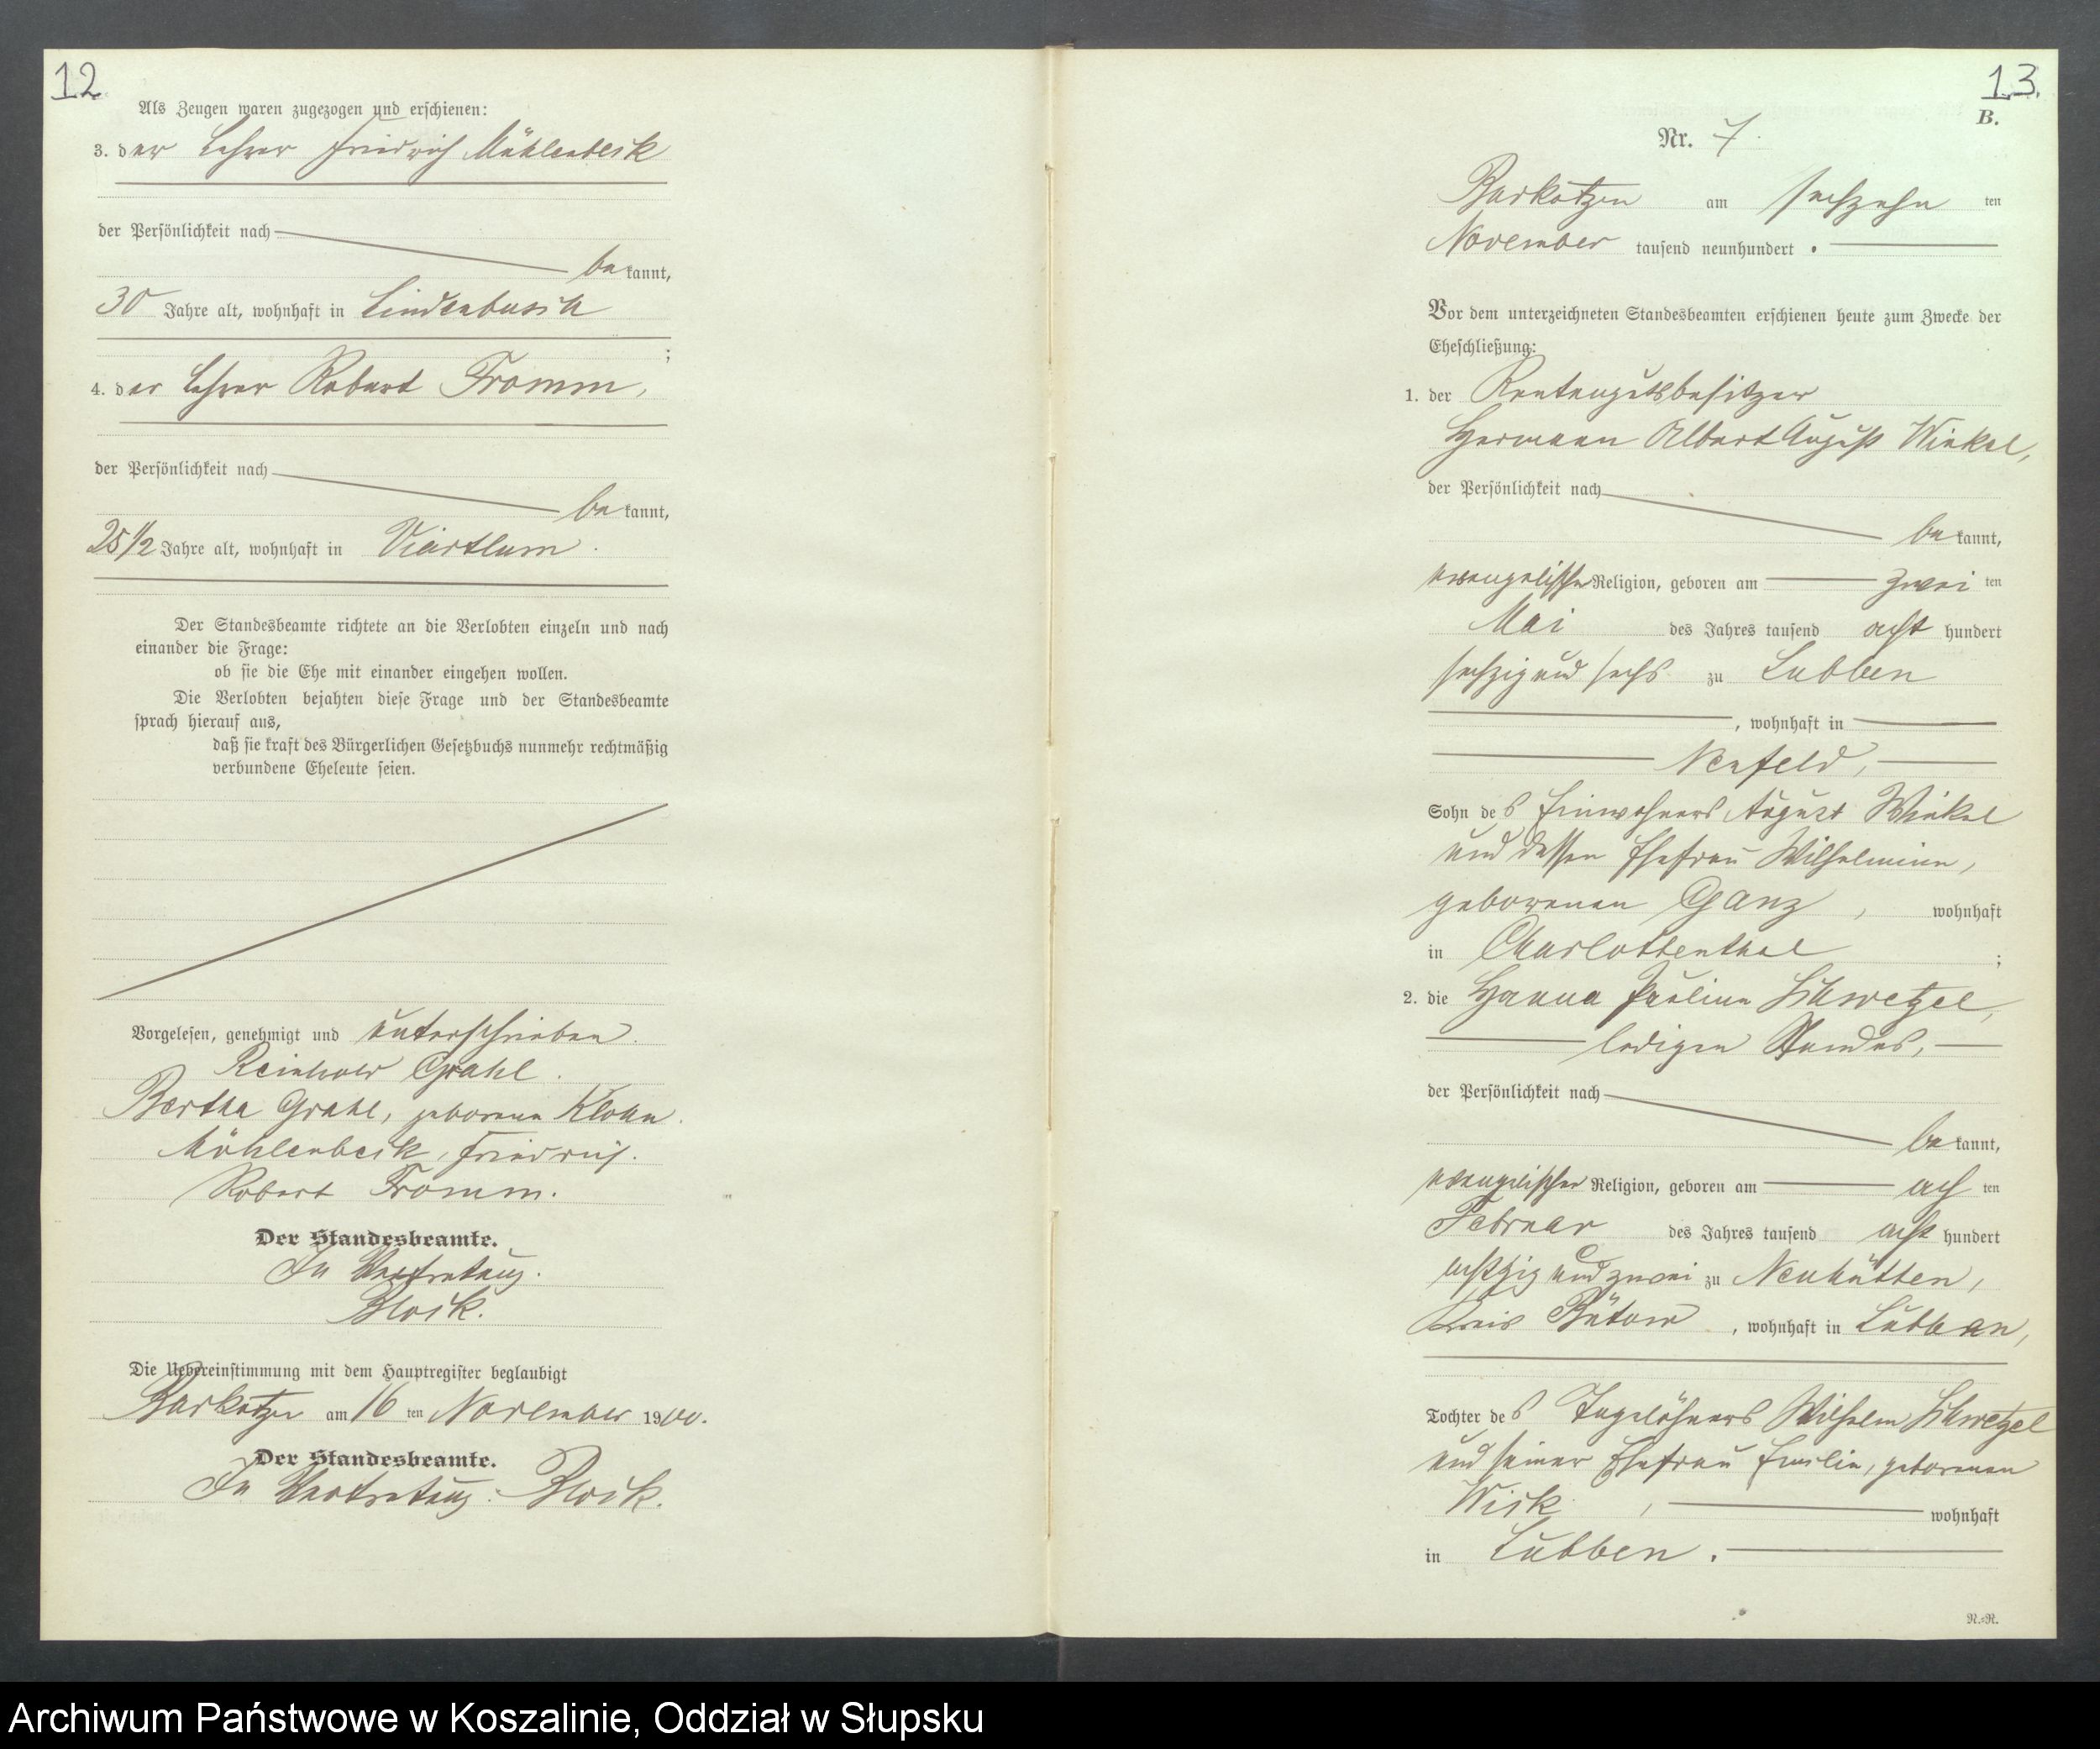 12
Als Zeugen waren zugezogen und erschienen:
3. der Lehrer Friedrich Mühlenbeck
der Persönlichkeit nach
bekannt,
30 Jahre alt, wohnhaft in Lindenbusch
;
4. der Lehrer Robert Fromm,
der Persönlichkeit nach
bekannt,
25 1/2 Jahre alt, wohnhaft in Viartlum.
Der Standesbeamte richtete an die Verlobten einzeln und nach
einander die Frage:
ob sie die Ehe mit einander eingehen wollen.
Die Verlobten bejahten diese Frage und der Standesbeamte
sprach hierauf aus,
daß sie kraft des Bürgerlichen Gesetzbuchs nunmehr rechtmäßig
verbundene Eheleute seien.
Vorgelesen, genehmigt und unterschrieben.
Reinhold Grahl.
Bertha Grahl, geborene
Mühlenbeck, Friedrich.
Robert Fromm.
Der Standesbeamte.
In Vertretung.
Block.
Die Uebereinstimmung mit dem Hauptregister beglaubigt
Barkotzen am 16 ten November 1900.
Der Standesbeamte.
In Vertretung: Block.
13.
B.
Nr. 7.
Barkotzen am sechzehn ten
November tausend neunhundert .
Vor dem unterzeichneten Standesbeamten erschienen heute zum Zwecke der
Eheschließung:
1. der Rentengutsbesitzer
Hermann Albert August Winkel,
der Persönlichkeit nach
bekannt,
evangelischer Religion, geboren am zwei ten
Mai des Jahres tausend acht hundert
sechzig und sechs zu Lubben
, wohnhaft in
Neufeld,
Sohn des Einwohners August Winkel
und dessen Ehefrau Wilhelmine,
geborenen Ganz, wohnhaft
in Charlottenthal ;
2. die Hanna Pauline Schwetzel,
ledigen Standes,
der Persönlichkeit nach
bekannt,
evangelischer Religion, geboren am ach ten
Februar des Jahres tausend acht hundert
achtzig und zwei zu Neuhütten,
Kreis Bütow, wohnhaft in Lubben,
Tochter des Tagelöhners Wilhelm Schwetzel
und seiner Ehefrau Emilie, geborenen
Wick, wohnhaft
in Lubben.
N.-R.
Archiwum Państwowe w Koszalinie, Oddział w Słupsku